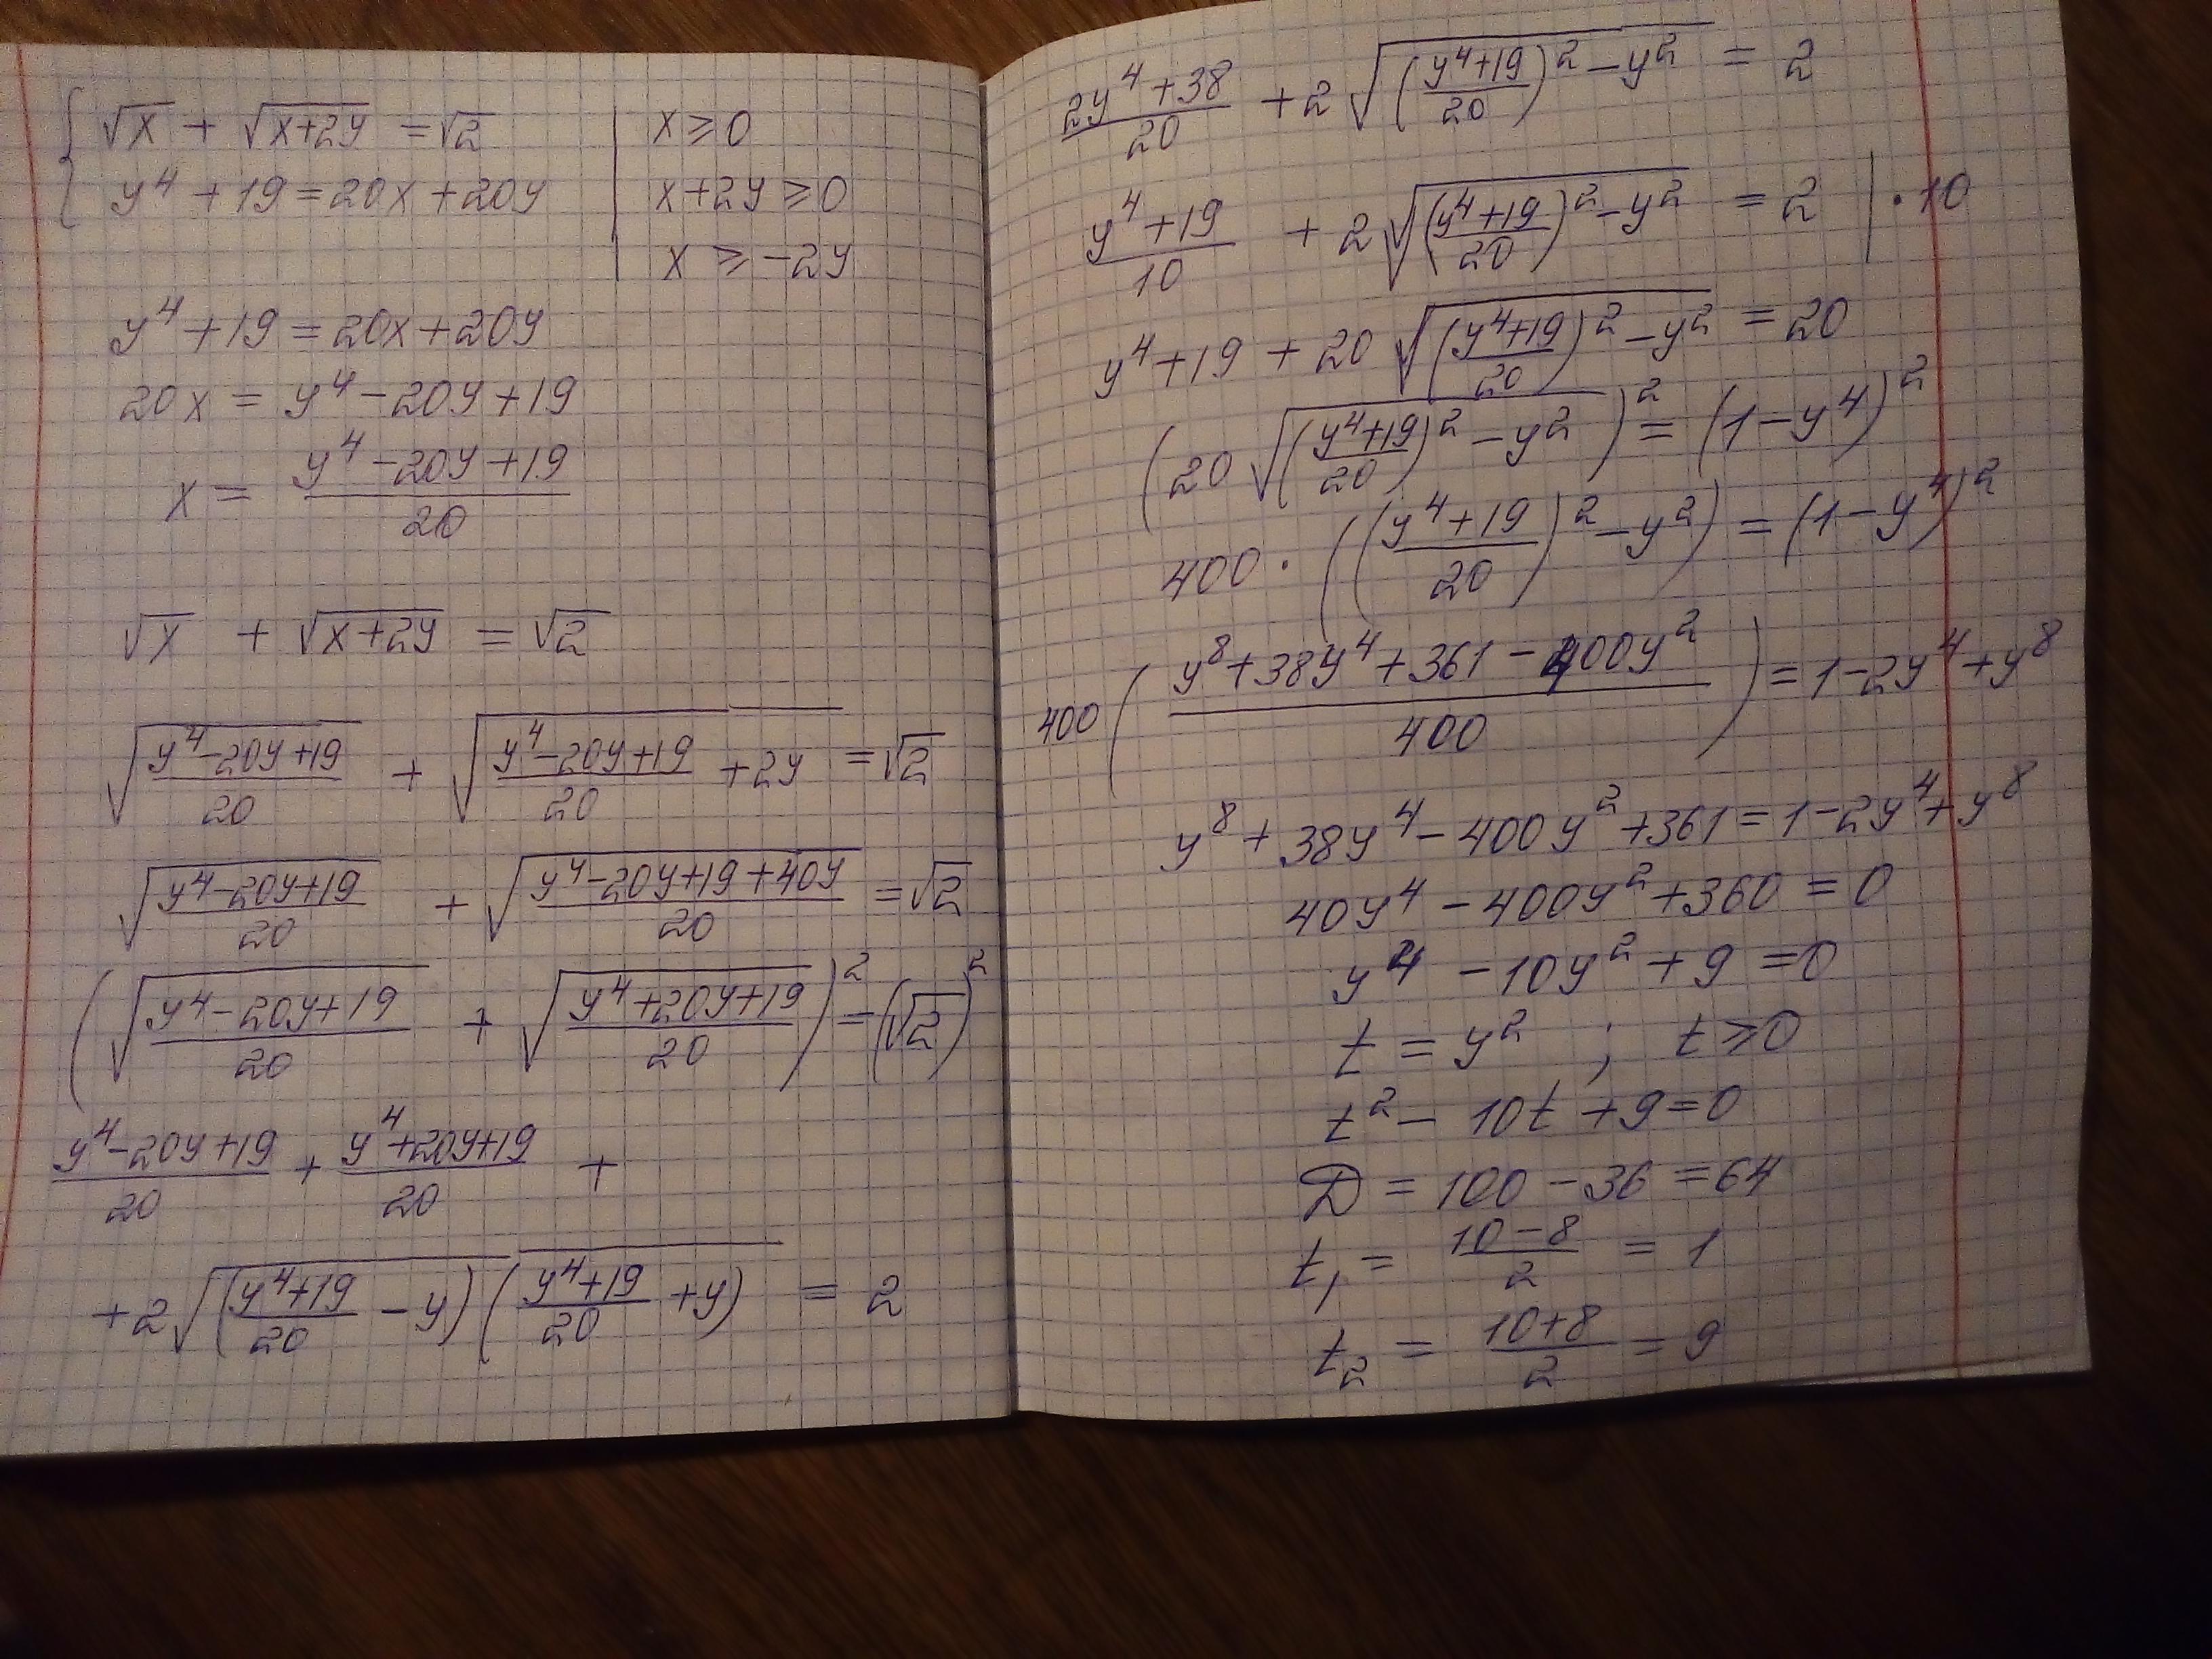 { √x + √(x+2y) = √2 | x ≥ 0
y⁴ + 19 = 20x + 20y | x+2y ≥ 0
x ≥ -2y
y⁴ + 19 = 20x + 20y
20x = y⁴ - 20y + 19
x = (y⁴ - 20y + 19)/20
√x + √(x+2y) = √2
√((y⁴-20y+19)/20) + √((y⁴-20y+19)/20 + 2y) = √2
√((y⁴-20y+19)/20) + √((y⁴-20y+19+40y)/20) = √2
(√((y⁴-20y+19)/20) + √((y⁴+20y+19)/20))² = (√2)²
(y⁴-20y+19)/20 + (y⁴+20y+19)/20 +
+ 2√(((y⁴+19)/20 - y)((y⁴+19)/20 + y)) = 2
(2y⁴+38)/20 + 2√(((y⁴+19)/20)² - y²) = 2
(y⁴+19)/10 + 2√(((y⁴+19)/20)² - y²) = 2 | · 10
y⁴+19 + 20√(((y⁴+19)/20)² - y²) = 20
(20√(((y⁴+19)/20)² - y²))² = (1-y⁴)²
400 · (((y⁴+19)/20)² - y²) = (1-y⁴)²
400((y⁸+38y⁴+361-400y²)/400) = 1-2y⁴+y⁸
y⁸+38y⁴-400y²+361 = 1-2y⁴+y⁸
40y⁴-400y²+360 = 0
y⁴ - 10y² + 9 = 0
t = y² ; t ≥ 0
t² - 10t + 9 = 0
D = 100 - 36 = 64
t₁ = (10-8)/2 = 1
t₂ = (10+8)/2 = 9